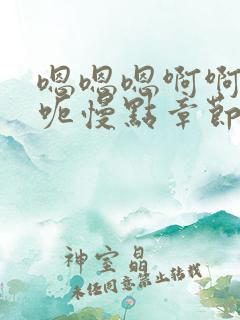 嗯嗯嗯啊啊
呃慢點章節
神室晶
未经同意禁止转载